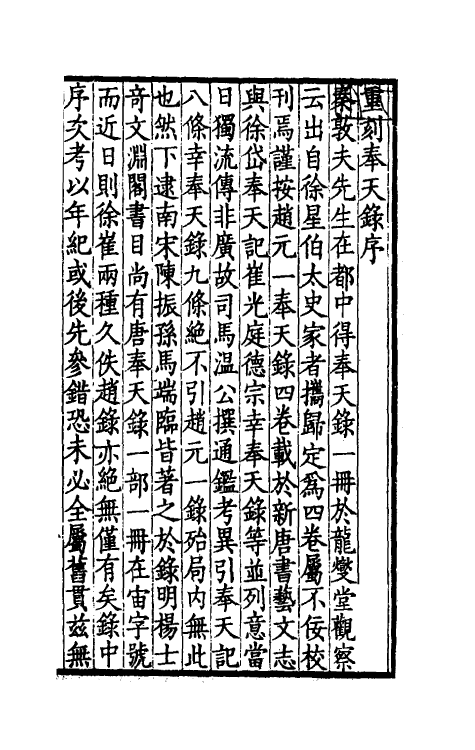 重刻奉天錄序
秦敦夫先生在都中得奉天錄一冊於龍燮堂觀察
云出自徐星伯太史家者攜歸定爲四卷屬不佞校
刊焉謹按趙元一奉天錄四卷載於新唐書藝文志
與徐岱奉天記崔光庭德宗幸奉天錄等並列意當
日獨流傳非廣故司馬溫公撰通鑑考異引奉天記
八條幸奉天錄九條絕不引趙元一錄殆局內無此
也然下逮南宋陳振孫馬端臨皆著之於錄明楊士
奇文淵閣書目尚有唐奉天錄一部一冊在宙字號
而近日則徐崔兩種久佚趙錄亦絕無僅有矣錄中
序次考以年紀或後先參錯恐未必全屬舊貫茲無